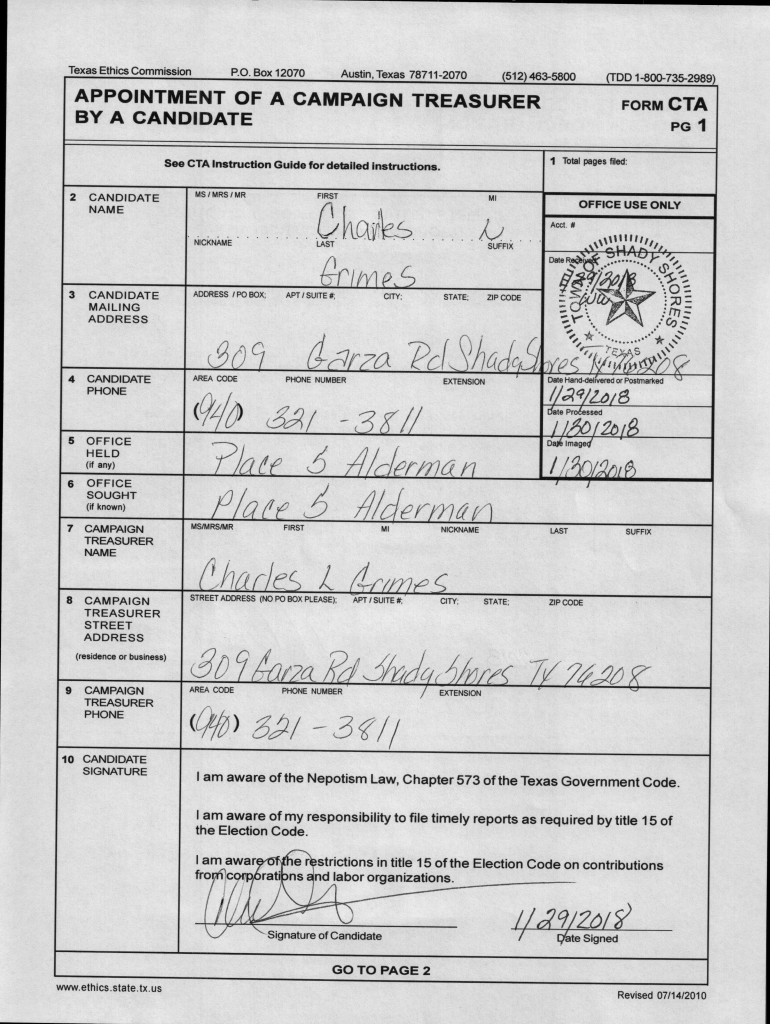 Texas Ethics Commission P.O. Box 12070 Austin, Texas 78711-2070 (512) 463-5800 (TDD 1-800-735-2989)
APPOINTMENT OF A CAMPAIGN TREASURER
BY A CANDIDATE
FORM CTA
PG 1
See CTA Instruction Guide for detailed instructions.
1 Total pages filed:
2 CANDIDATE
NAME
MS / MRS / MR FIRST MI
Charles L
NICKNAME LAST SUFFIX
Grimes
OFFICE USE ONLY
Acct. #
Date Received
TOWN OF SHADY SHORES
TEXAS
3 CANDIDATE
MAILING
ADDRESS
ADDRESS / PO BOX; APT / SUITE #; CITY; STATE; ZIP CODE
309 Garza Rd Shady Shores TX 76208
4 CANDIDATE
PHONE
AREA CODE PHONE NUMBER EXTENSION
(940) 321-3811
Date Hand-delivered or Postmarked
1/29/2018
Date Processed
1/30/2018
Date Imaged
1/30/2018
5 OFFICE
HELD
(if any)
Place 5 Alderman
6 OFFICE
SOUGHT
(if known)
Place 5 Alderman
7 CAMPAIGN
TREASURER
NAME
MS/MRS/MR FIRST MI NICKNAME LAST SUFFIX
Charles L Grimes
8 CAMPAIGN
TREASURER
STREET
ADDRESS
(residence or business)
STREET ADDRESS (NO PO BOX PLEASE); APT / SUITE #; CITY; STATE; ZIP CODE
309 Garza Rd Shady Shores TX 76208
9 CAMPAIGN
TREASURER
PHONE
AREA CODE PHONE NUMBER EXTENSION
(940) 321-3811
10 CANDIDATE
SIGNATURE
I am aware of the Nepotism Law, Chapter 573 of the Texas Government Code.
I am aware of my responsibility to file timely reports as required by title 15 of
the Election Code.
I am aware of the restrictions in title 15 of the Election Code on contributions
from corporations and labor organizations.
1/29/2018
Signature of Candidate Date Signed
GO TO PAGE 2
www.ethics.state.tx.us
Revised 07/14/2010